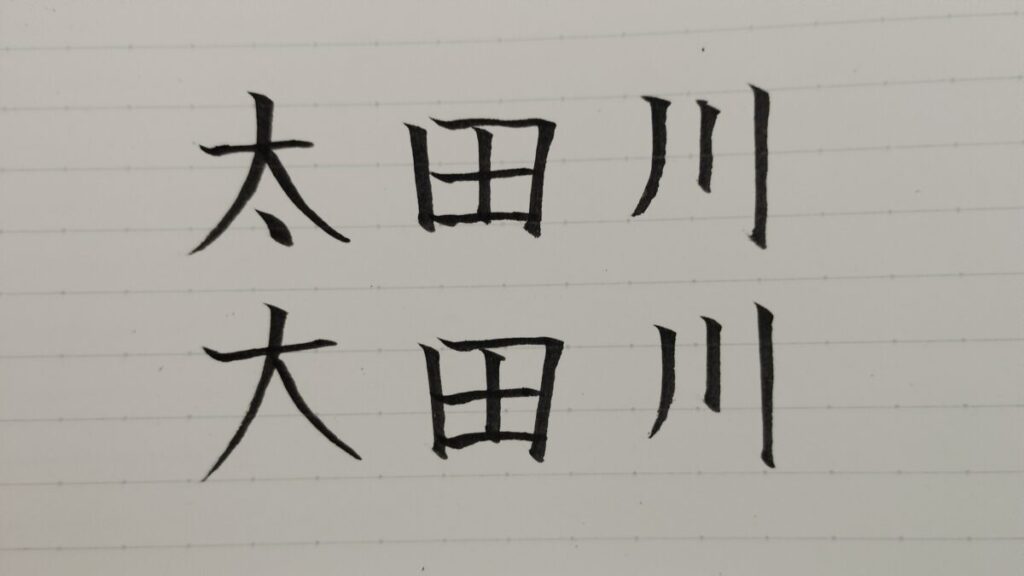 太田川
大田川